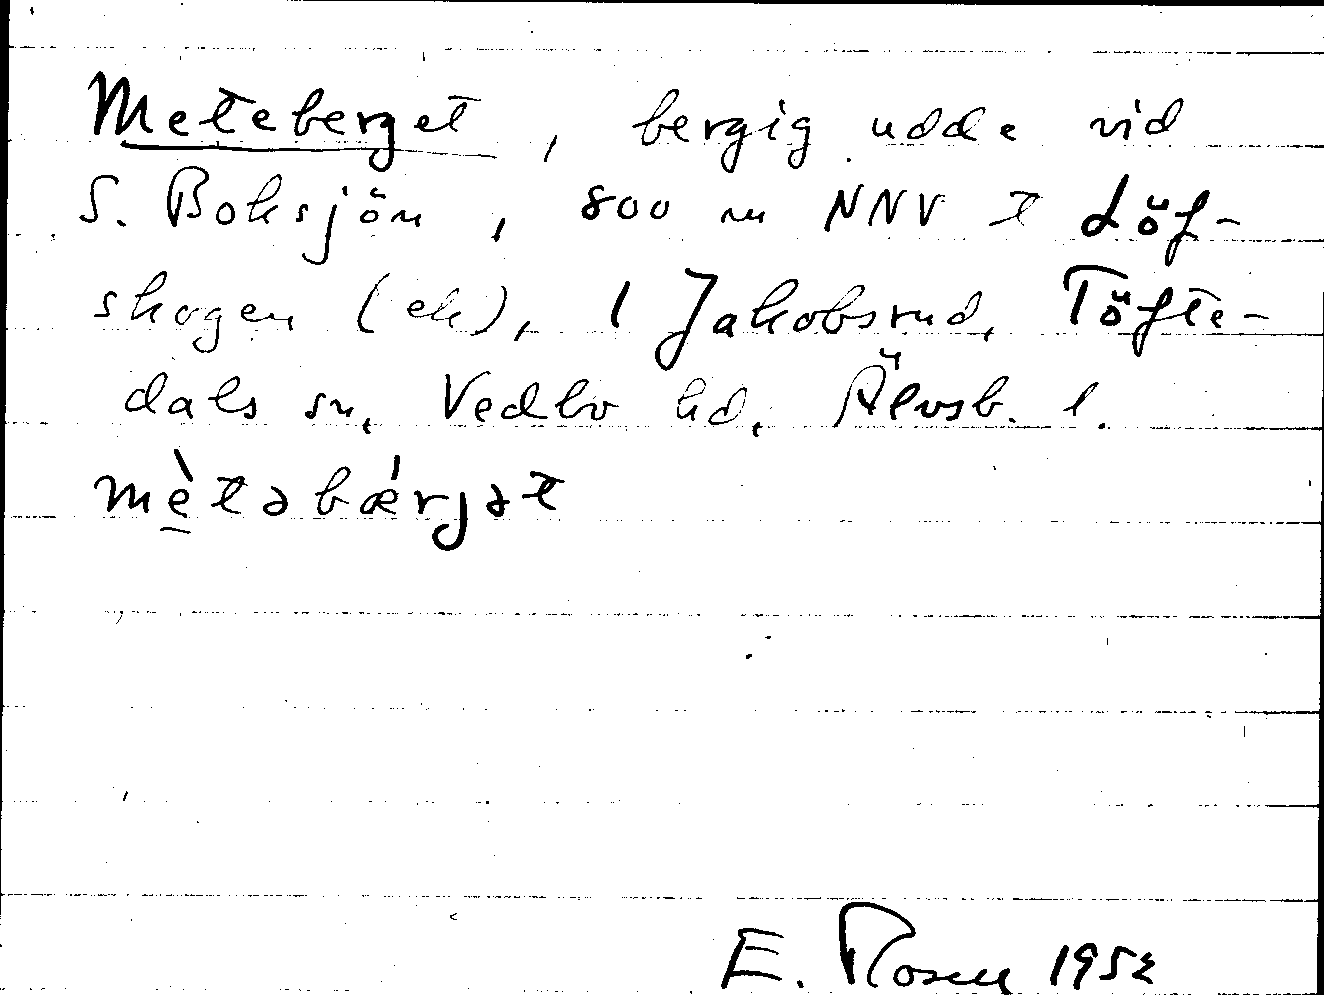 Meteberget, bergig udde vid
S. Boksjön, 800 m NNV t Löf-
skogen (ek), 1 Jakobsrud, Töfte-
dals sn, Vedbo hd, Älvsb. l.
mètəbǽrjət
E. Rosen 1952